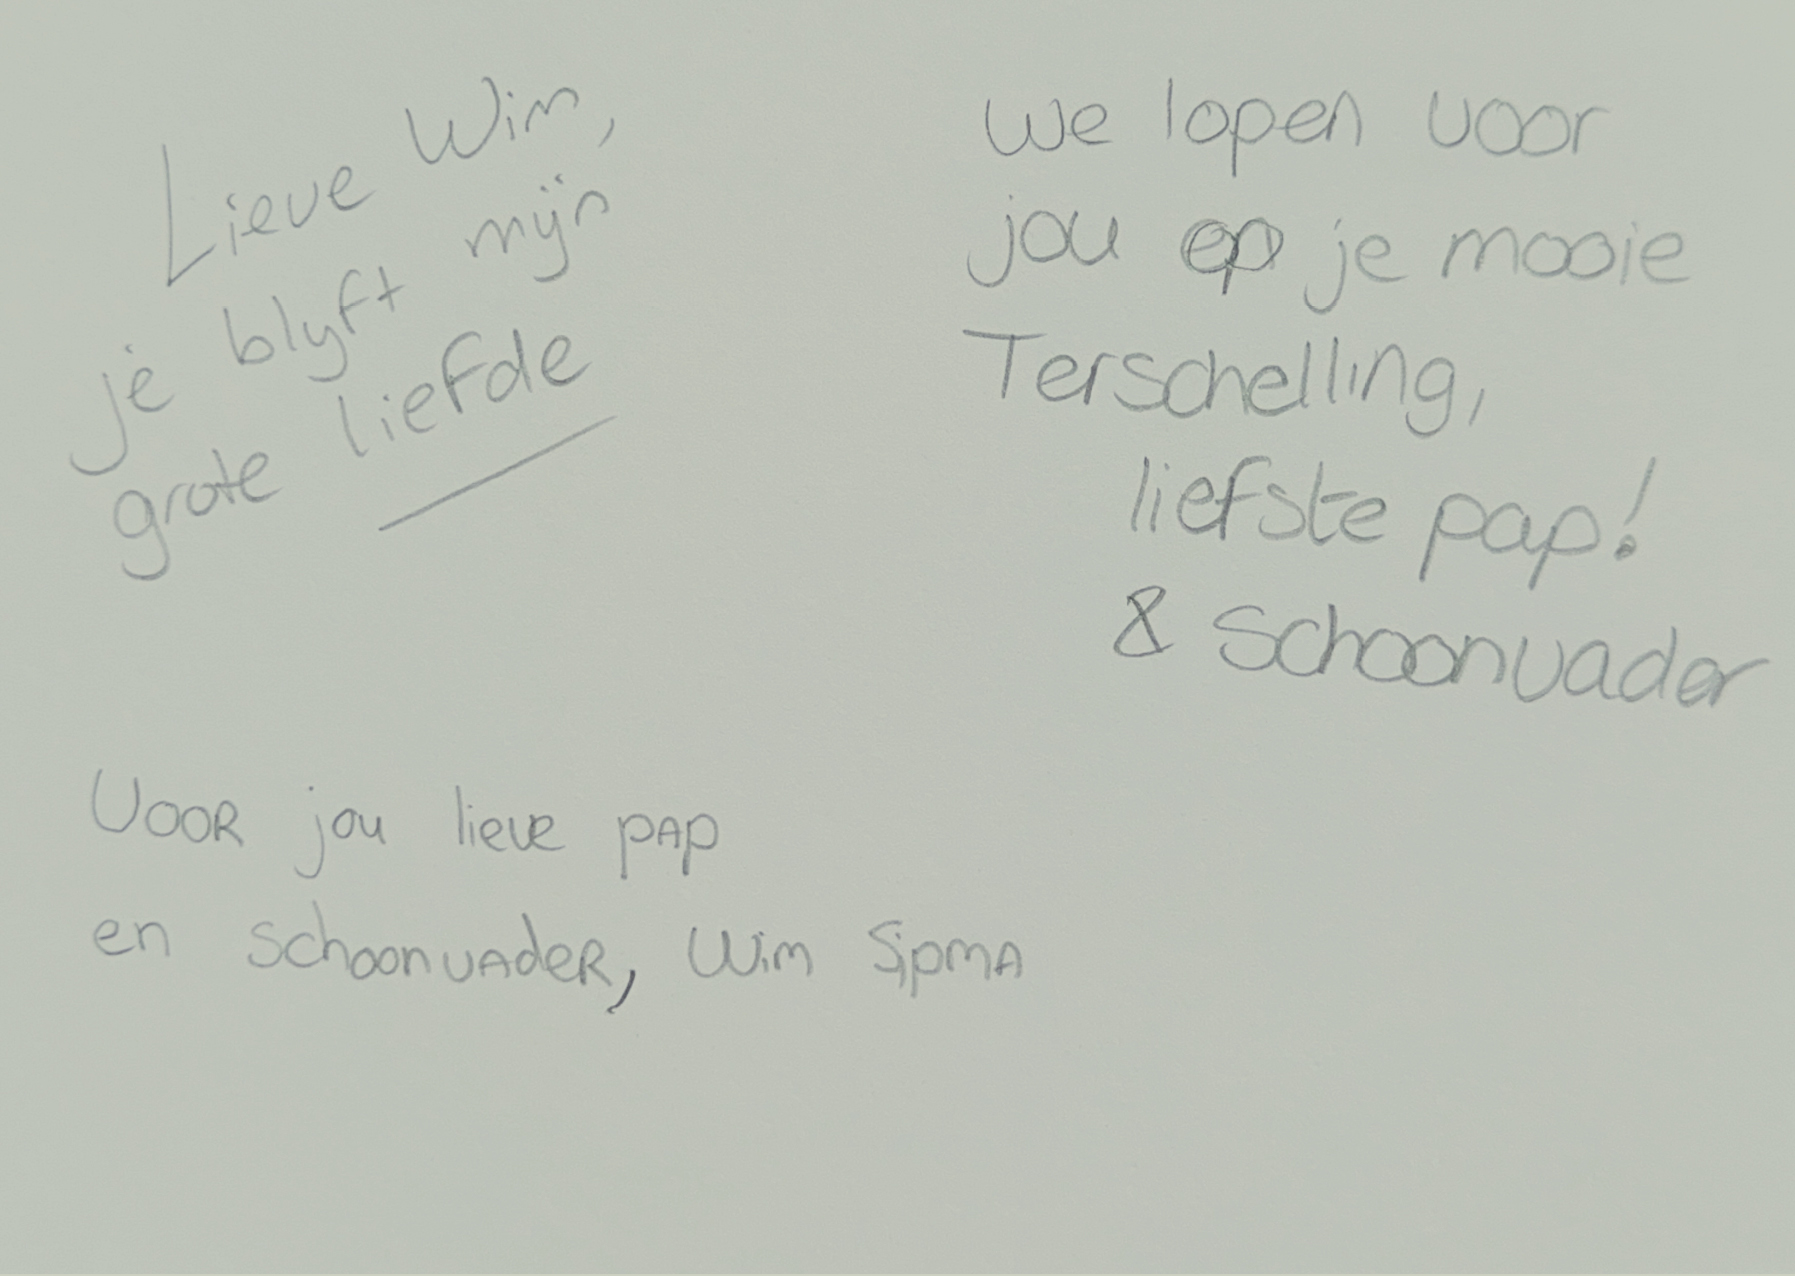 Lieve Wim,
je blijft mijn
grote liefde
We lopen voor
jou op je mooie
Terschelling,
liefste pap!
& schoonvader
VOOR jou lieve pAp
en schoonvAdeR, Wim SipmA